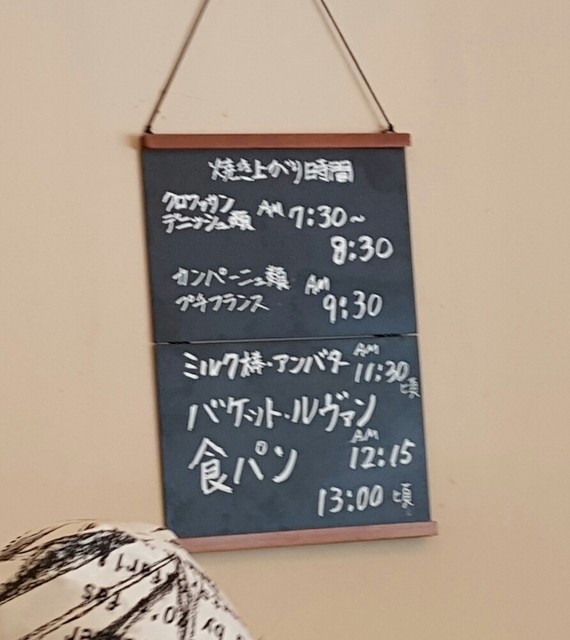 焼き上がり時間
クロワッサン
デニッシュ類 AM 7:30~
8:30
カンパーニュ類 AM
プチフランス 9:30
ミルク棒・アンバター AM 11:30
バケット・ルヴァン
食パン AM 12:15
13:00
by
fas